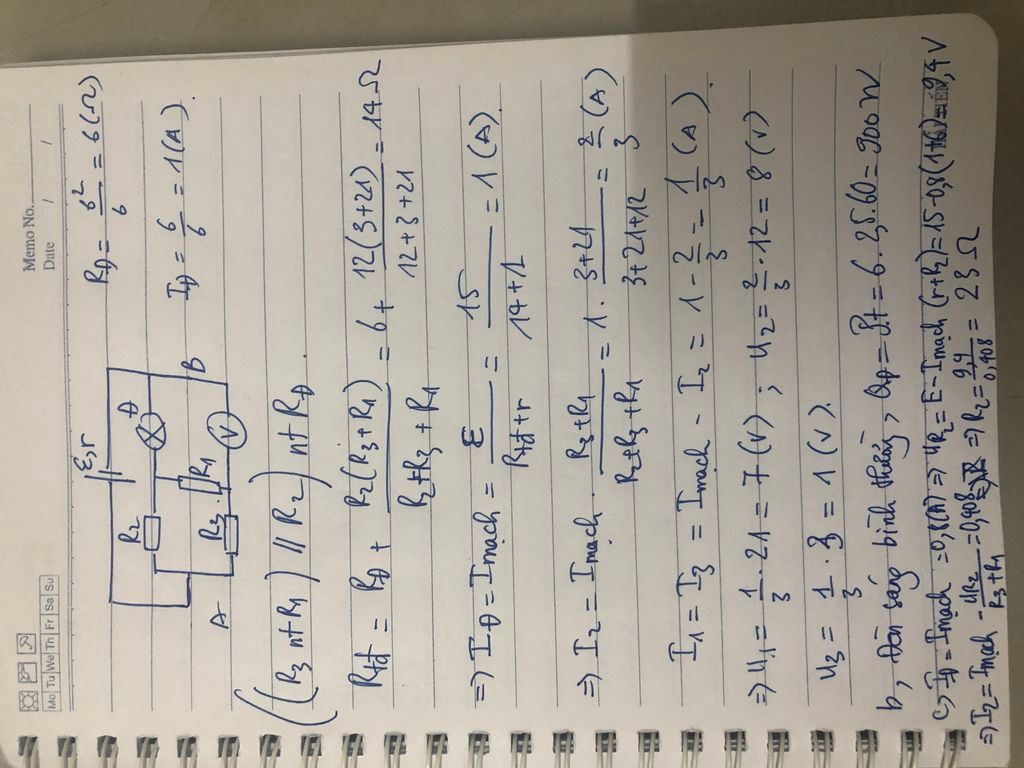 Memo No.
Mo Tu We Th Fr Sa Su
Date / /
ε,r
R2
Đ
R3
R1
V
A
B
RĐ = 6²/6 = 6(Ω)
IĐ = 6/6 = 1(A).
((R3 nt R1) // R2) nt RĐ
Rtđ = RĐ + R2(R3+R1)/(R2+R3+R1) = 6 + 12(3+21)/(12+3+21) = 14Ω
=> IĐ = Imạch = ε/(Rtđ+r) = 15/(14+1) = 1(A)
=> I2 = Imạch . (R3+R1)/(R2+R3+R1) = 1. (3+21)/(3+21+12) = 2/3 (A)
I1 = I3 = Imạch - I2 = 1 - 2/3 = 1/3 (A).
=> U1 = 1/3 . 21 = 7(V) ; U2 = 2/3 . 12 = 8(V)
U3 = 1/3 . 3 = 1(V).
b, Đèn sáng bình thường, QĐ = Pt = 6.2,5.60 = 900W
c, IĐ = Imạch = 0,8(A) => UR2 = E - Imạch(r+R2) = 15-0,8(1+6) = 9,4V
=> I2 = Imạch - UR2/(R3+R1) = 0,408 => R2 = 9,4/0,408 = 23Ω